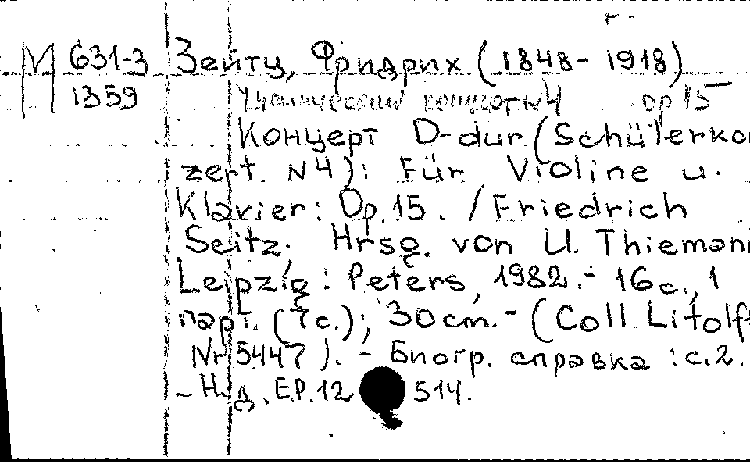 М 631-3 Зейтц, Фридрих (1848-1918)
1359 Ученический концерт №4 op 15
Концерт D-dur (Schülerkon
zert N4): Für Violine u.
Klavier: Op. 15. / Friedrich
Seitz. Hrsg. von U. Thiemann
Leipzig: Peters, 1982.- 16 с., 1
парт. (7 с.); 30 cm.- (Coll. Litolff
Nr 5447). - Биогр. справка : с.2.
- Н.д. E.P. 12 514.